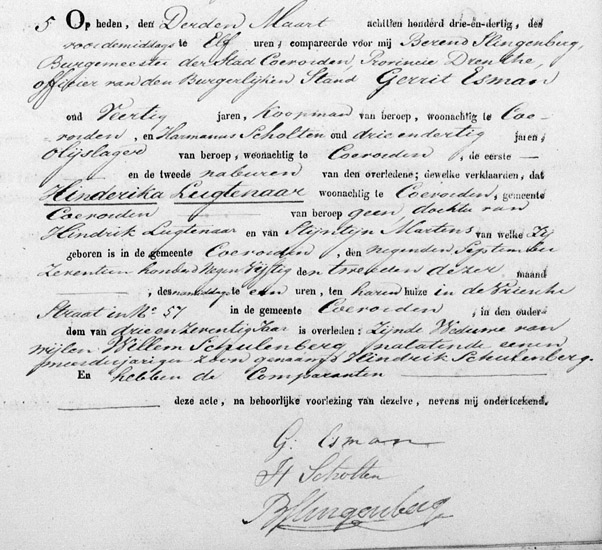 5 Op heden, den Derden Maart achttien honderd drie-en-dertig, des
voordemiddags te Elf uren, compareerde voor mij Berend Slingenberg,
Burgemeester der Stad Coevorden, Provincie Drenthe,
officier van den Burgerlijken Stand Gerrit Esman
oud Veertig jaren, Koopman van beroep, woonachtig te Coe-
vorden, en Harmanus Scholten oud drie endertig jaren,
Olijslager van beroep, woonachtig te Coevorden, de eerste
en de tweede naburen van den overledene; dewelke verklaarden, dat
Hinderika Lugtenaar woonachtig te Coevorden, gemeente
Coevorden van beroep geen, dochter van
Hindrik Lugtenaar en van Stijntijn Martens van welke Zij
geboren is in de gemeente Coevorden, den negenden September
Zeventien honderd Negen Vijftig den tweeden dezer maand
, des namiddags te een uren, ten haren huize in de Friesche
Straat in No 57 in de gemeente Coevorden, in den ouder-
dom van drie en zeventig Jaar is overleden: Zijnde Weduwe van
wijlen Willem Schulenberg nalatende eenen
meerderjarigen zoon genaamd Hindrik Schulenberg.
En hebben de Comparanten
deze acte, na behoorlijke voorlezing van dezelve, nevens mij onderteekend.
G. Esman
H Scholten
BSlingenberg